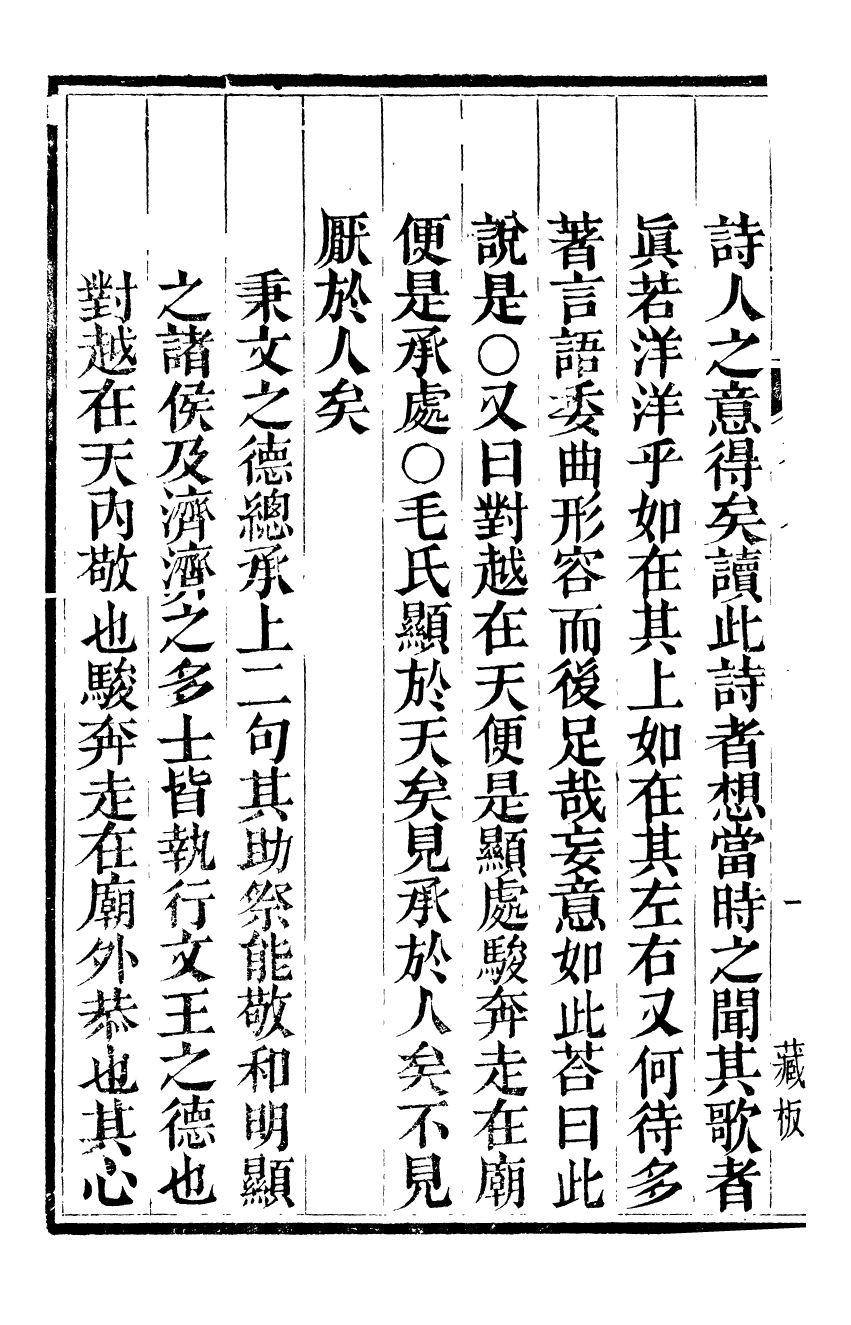 詩人之意得矣讀此詩者想當時之聞其歌者
眞若洋洋乎如在其上如在其左右又何待多
著言語委曲形容而後足哉妄意如此荅曰此
說是○又曰對越在天便是顯處駿奔走在廟
便是承處○毛氏顯於天矣見承於人矣不見
厭於人矣
秉文之德總承上二句其助祭能敬和明顯
之諸侯及濟濟之多士皆執行文王之德也
對越在天內敬也駿奔走在廟外恭也其心
藏板